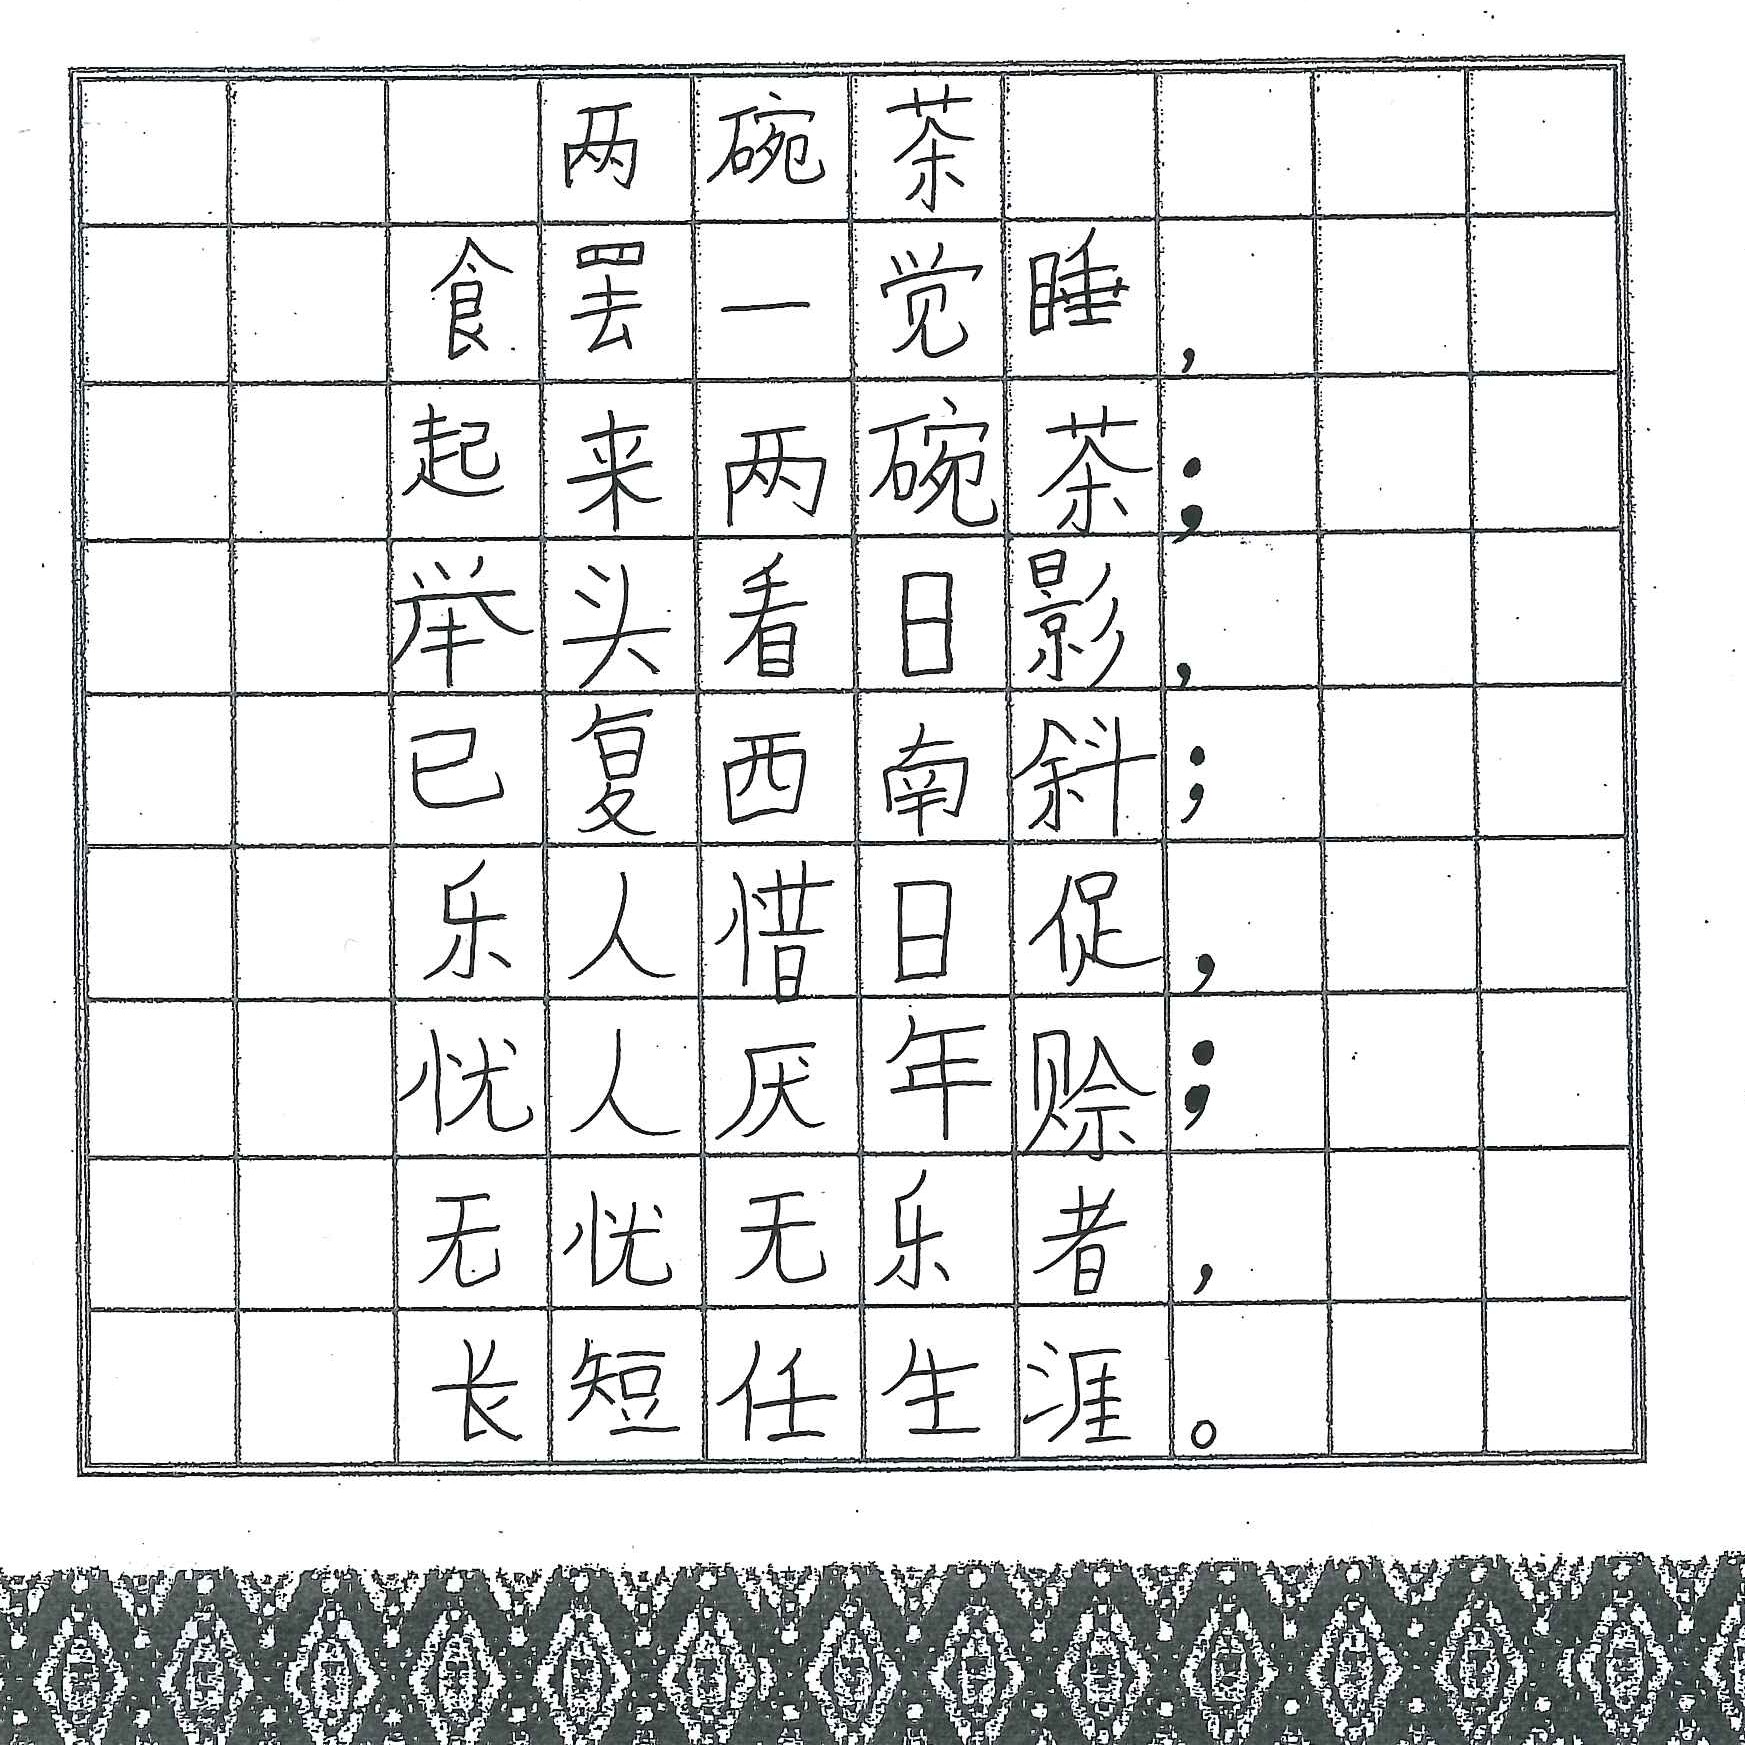 两碗茶
食罢一觉睡，
起来两碗茶；
举头看日影，
已复西南斜；
乐人惜日促，
忧人厌年赊；
无忧无乐者，
长短任生涯。